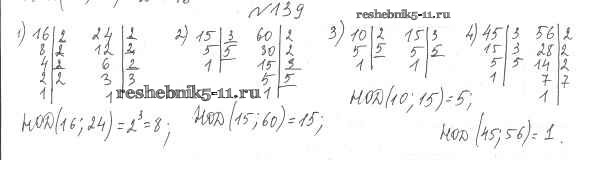 №139
reshebnik5-11.ru
1) 16 2 24 2 2) 15 3 60 2 3) 10 2 15 3 4) 45 3 56 2
8 2 12 2 5 5 30 2 5 5 5 5 15 3 28 2
4 2 6 2 1 15 3 1 1 5 5 14 2
2 2 3 3 5 5 1 7 7
1 1 reshebnik5-11.ru 1 1
НОД(10; 15) = 5;
НОД(16; 24) = 2³ = 8; НОД(15; 60) = 15;
НОД(45; 56) = 1.